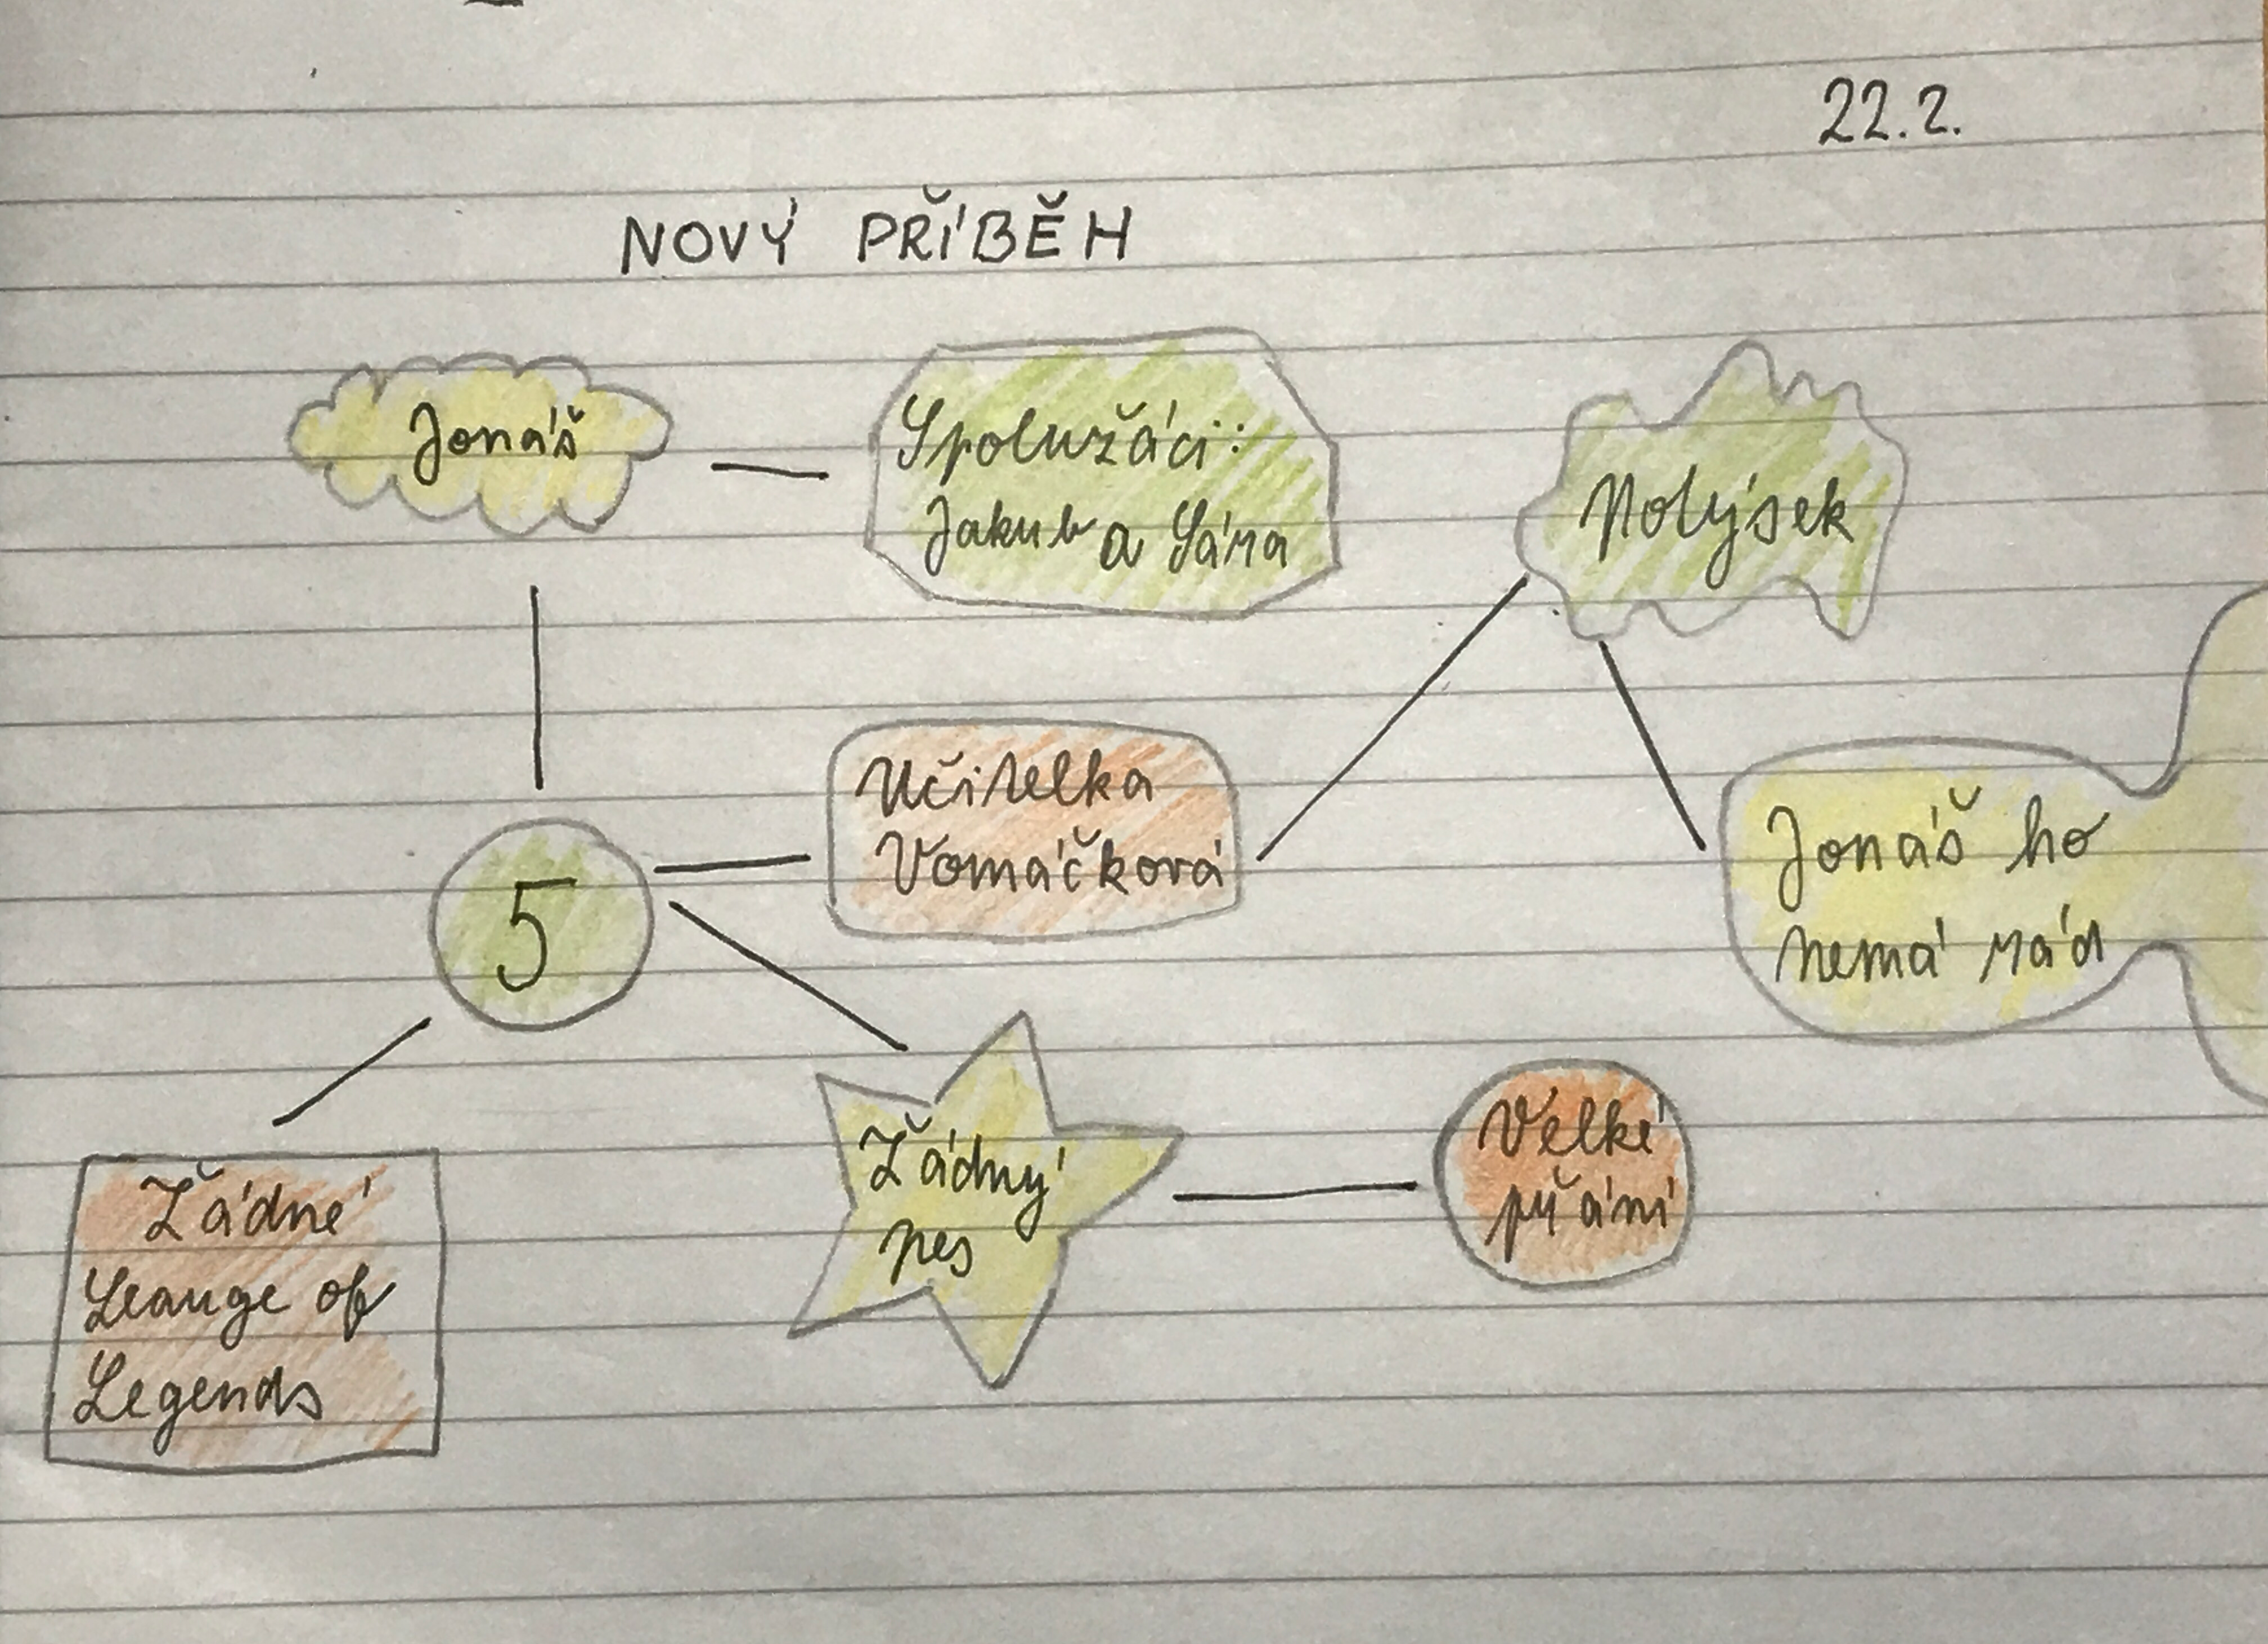 22.2.
NOVÝ PŘÍBĚH
Jonáš
Spolužáci:
Jakub a Sára
Nolýsek
Učitelka
Vomáčková
Jonáš ho
nemá rád
5
Žádný
pes
Velké
přání
Žádné
Leauge of
Legends